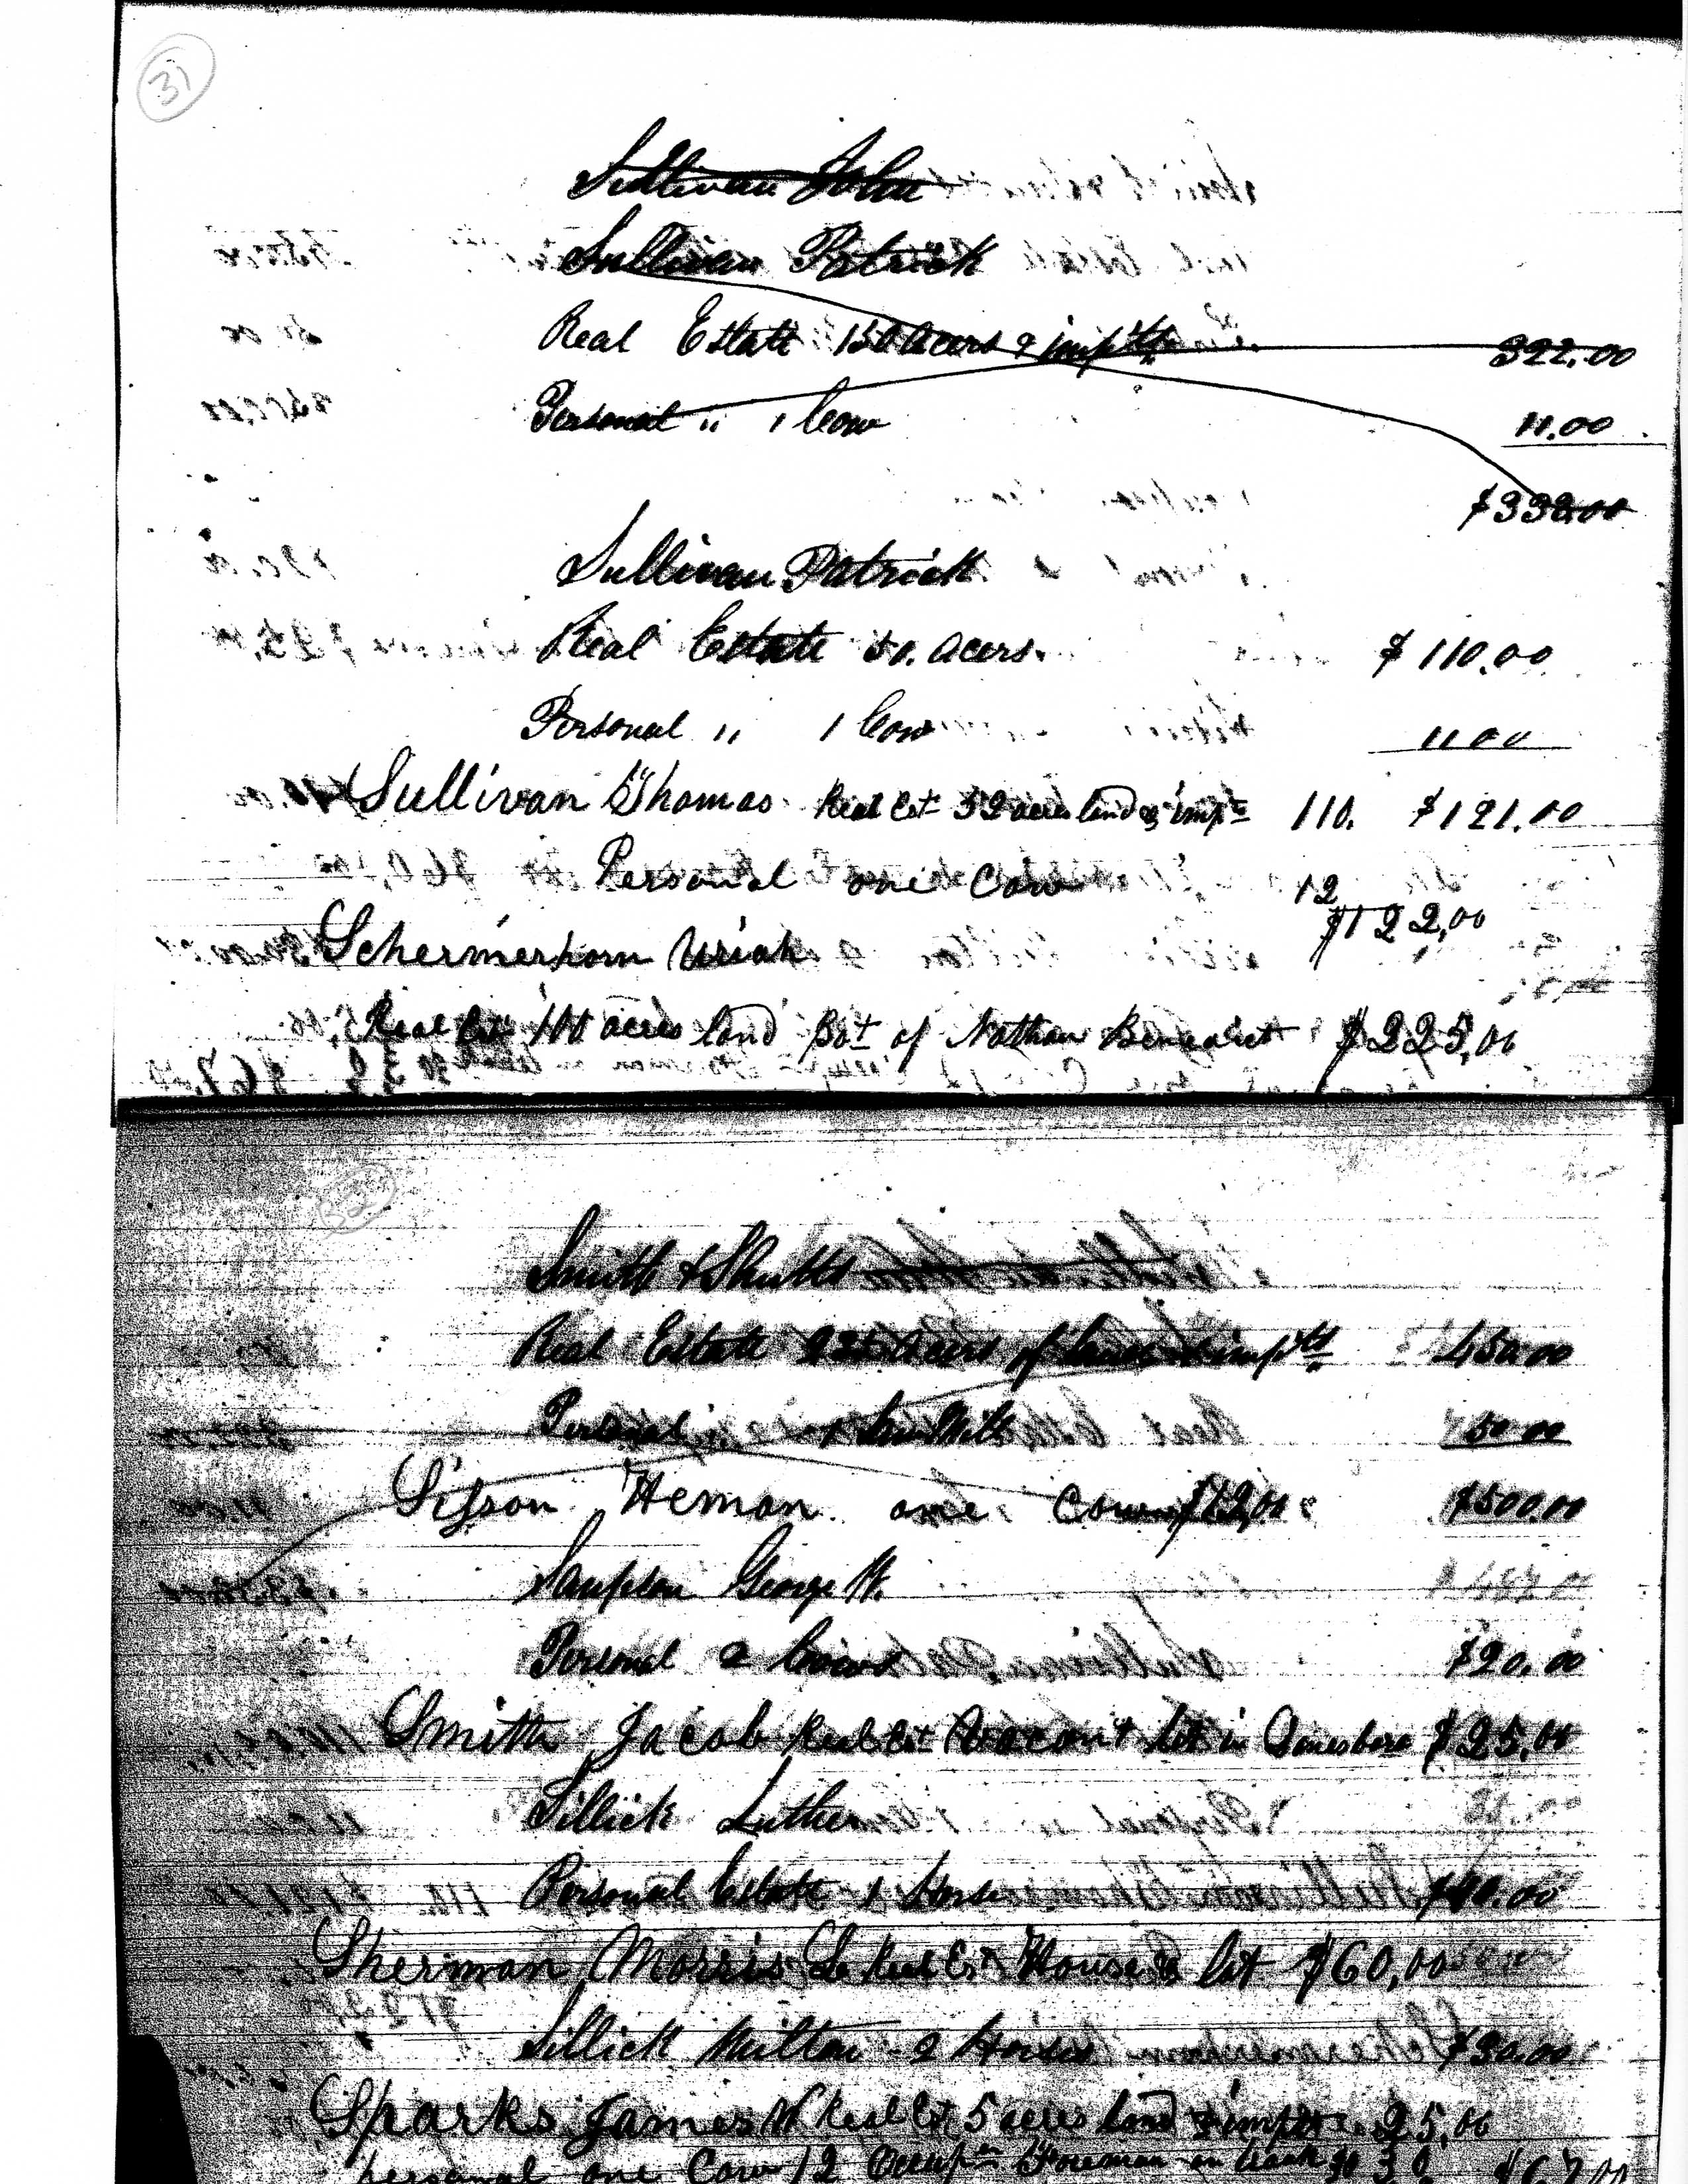 31
Sullivan John
Sullivan Patrick
Real Estate 150 Acers & impts 322.00
Personal " 1 Cow 11.00
$332.00
Sullivan Patrick
Real Estate 50. Acers. $110.00
Personal " 1 Cow 11 00
Sullivan Thomas Real Est 52 acres land & impts 110. $121.00
Personal one Cow 12
$122,00
Schermerhorn Uriah
Real Est 100 acres land Bot of Nathan Benedict $225,00
32
Smith & Shutts
Real Estate Acers of & impts 450.00
Personal 1 Saw Mill 50.00
Sisson Heman one Cow $12,00 $500.00
Sampson George W.
Personal 2 Cows $20.00
Smith Jacob Real Est Vacant lot in $25.00
Sillick Luther
Personal Estate 1 Horse $40.00
Sherman Morris Real Est House & lot $60,00
Sillick Milton 2 Horses $30.00
Sparks James W Real Est 5 acres land & impts. 25,00
personal one Cow 12 Occupn Foreman on track 30 $67,00